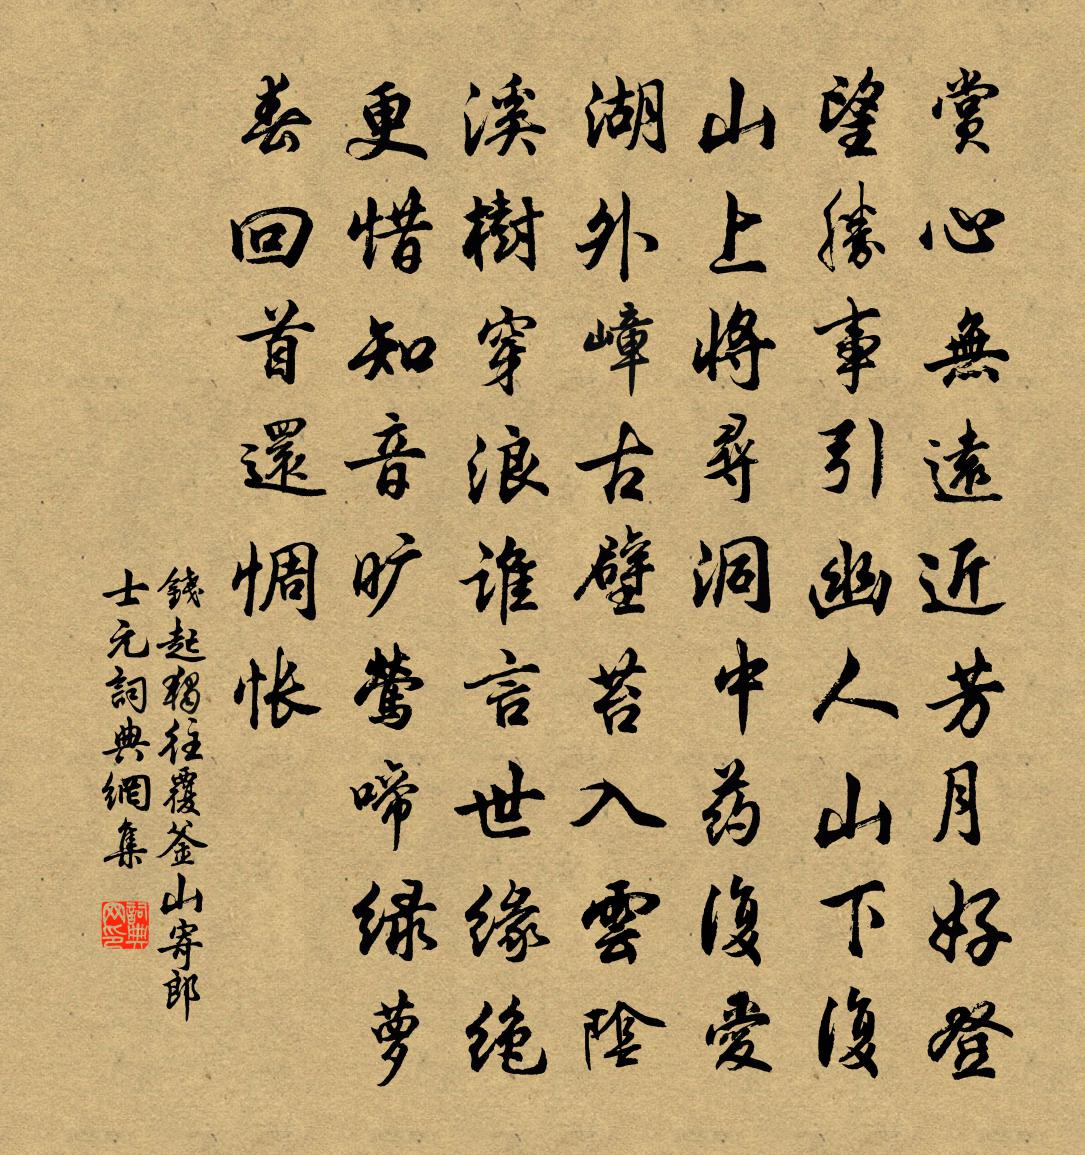 賞心無遠近芳月好登
望勝事引幽人山下復
山上將尋洞中药復愛
湖外嶂古壁苔入雲陰
溪樹穿浪谁言世缘绝
更惜知音旷莺啼绿萝
春回首還惆怅
錢起獨往覆釜山寄郎
士元詞典網集
詞典
网印